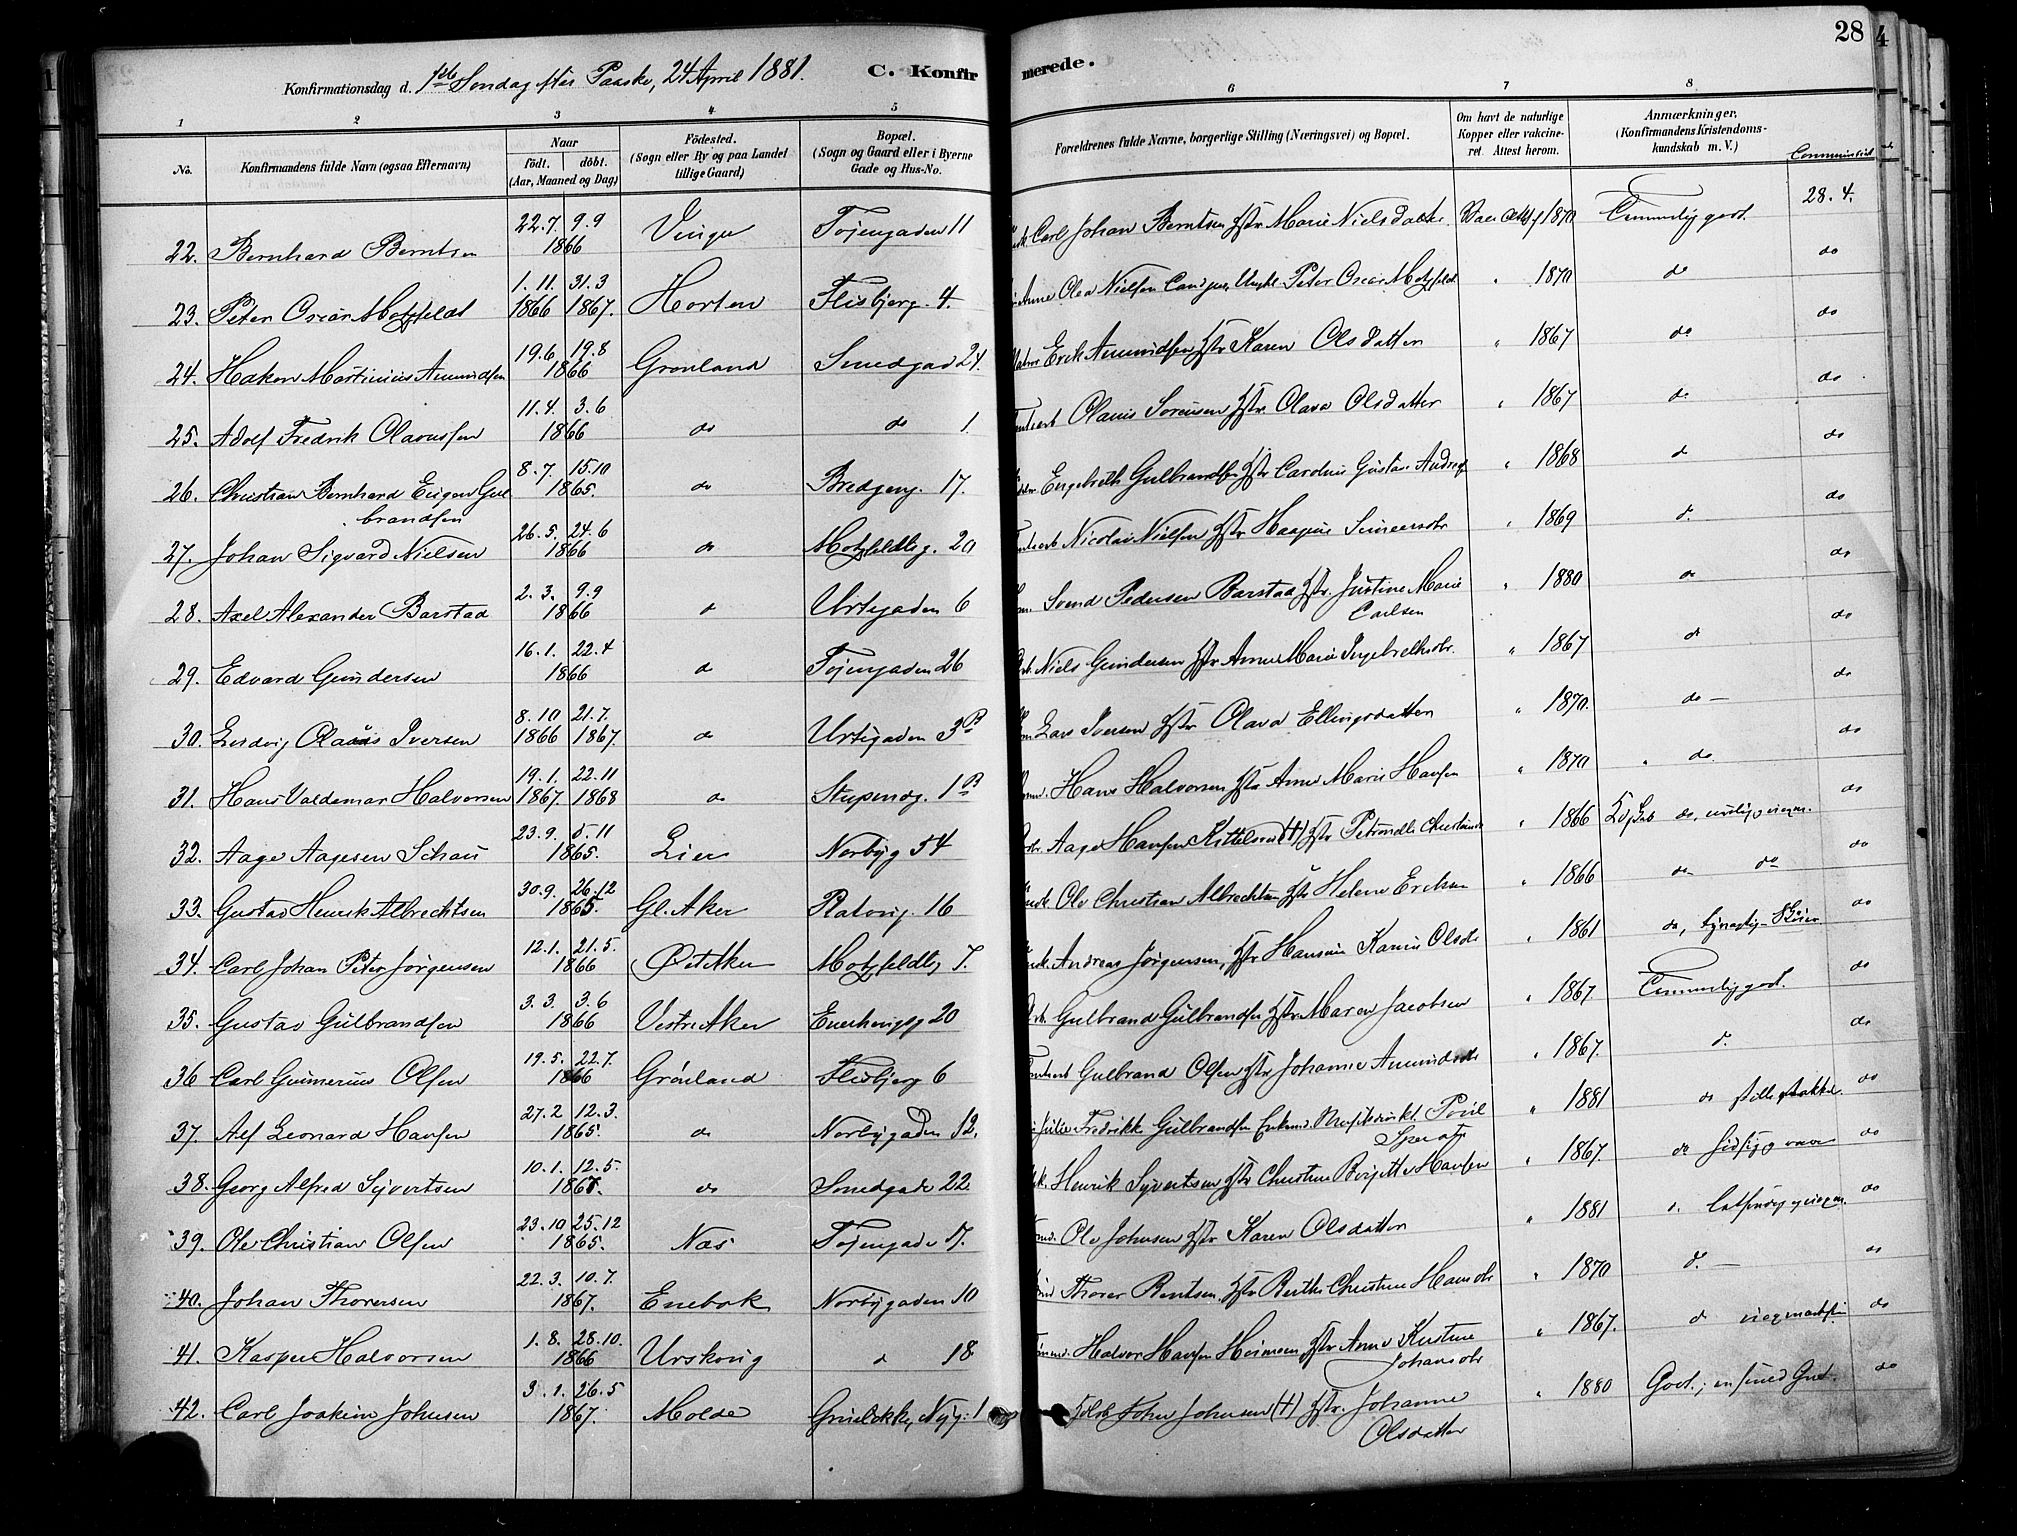 28
Konfirmationsdag d. 1ste Søndag efter Paaske, 24 April 1881. C. Konfirmerede.
1 2 3 4 5 6 7 8
No. Konfirmandens fulde Navn (ogsaa Efternavn) Naar født. døbt. (Aar, Maaned og Dag) Fødested. (Sogn eller By og paa Landet tillige Gaard) Bopæl. (Sogn og Gaard eller i Byerne Gade og Hus-No. Forældrenes fulde Navne, borgerlige Stilling (Næringsvei) og Bopæl. Om havt de naturlige Kopper eller vaccineret. Attest herom. Anmærkninger, (Konfirmandens Kristendomskundskab m. V.) Communicret
22. Bernhard Berntsen 22.7. 9.9 1866 Vinger Tøjengaden 11 Carl Johan Berntsen Hstr Marie Nielsdatter 1870 Temmelig godt. 28.4.
23. Peter Oscar Motzfeldt 1.11. 1866 31.3 1867. Horten Flisbjerg. 4. Anne Olea Nielsen Peter Oscar Motzfeldt " 1870 do do
24. Hakon Martinius Amundsen 19.6. 19.8 1866 Grønland Smedgad 24. Erik Amundsen Hstr Karen Olsdatter " 1867 do do
25. Adolf Fredrik Olavussen 11.4. 3.6 1866 do do 1. Olaus Sørensen Hstr Olava Olsdatter " 1867 do do
26. Christian Bernhard Eugen Gulbrandsen 8.7. 15.10 1865. do Bredgeng. 17. Engebreth Gulbrandsen Hstr Caroline Gustava " 1868 d do
27. Johan Sigvard Nielsen 26.5. 24.6 1866 do Motzfeldtsg. 20 Nicolai Nielsen Hstr " 1869 d. do
28. Axel Alexander Barstad 2.3. 9.9 1866 d Urtegaden 6 Svend Pedersen Barstad Hstr. Justine Marie Carlsen " 1880 do do
29. Edvard Gundersen 16.1. 22.4 1866 d Tøjengaden 26 Niels Gundersen Hstr Anne Marie Ingebrethsdtr. " 1867 do do
30. Ludvig Olaus Iversen 8.10 1866 21.7. 1867. d Urtegaden 3 B Lars Iversen Hstr Olava Ellingsdatter " 1870. do — do
31. Hans Valdemar Halvorsen 19.1. 1867. 22.11 1868 do Stupenog. 1 B Hans Halvorsen Hstr Anne Marie Hansen " 1870 " do. do
32. Aage Aagesen Schau 23.9. 5.11 1865. Lier Norbyg 54 Aage Hansen Kittelsrud (†) Hstr Petronelle " 1866 do
33. Gustav Henrik Albrechtsen 30.9. 26.12 1865. Gl. Aker Platoug. 16 Ole Christian Albrechtsen Hstr Helene Eriksen " 1866 do do do
34. Carl Johan Peter Jørgensen 12.1. 21.5. 1866 Øst. Aker Motzfeldtg 7. Andreas Jørgensen, Hstr Hansine Karine Olsdtr " 1861 do, do
35. Gustav Gulbrandsen 3.3. 3.6 1866 Vestre Aker Enerhougsg 20 Gulbrand Gulbrandsen Hstr Maren Jacobsen " 1867 Temmelig godt. do
36 Carl Gunnerius Olsen 19.5. 22.7. 1866 Grønland Flisbjerg 6 Gulbrand Olsen Hstr Johanne Amundsdtr " 1867. d. do
37. Alf Leonard Hansen 27.2 12.3. 1865. do Norbygaden 12. Julie Fredrikke Gulbrandsen Povel Sperati " 1881 do do
38. Georg Alfred Syvertsen 10.1. 12.5. 1867. do Smedgade 22. Henrik Syvertsen Hstr Christine Birgitte Hansen " 1867. do do
39. Ole Christian Olsen 23.10 25.12 1865. Næs Tøjengade 17. Ole Johnsen Hstr Karen Olsdatter " 1881 do
40. Johan Thorersen 22.3. 10.7. 1867. Enebak Norbygaden 10 Thorer Berntsen Hstr Berthe Christine Hansdtr " 1870 d. — do
41. Kasper Halvorsen 1.8. 28.10. 1866 Urskoug d 18 Halvor Hansen Hstr Anne Kirstine Johansdtr " 1867. d do
42. Carl Joakim Johnsen 3.1. 26.5 1867. Molde Grünløkke, Nyg. 1 John Johnsen (†) Hstr. Johanne Olsdatter " 1880 Godt. do